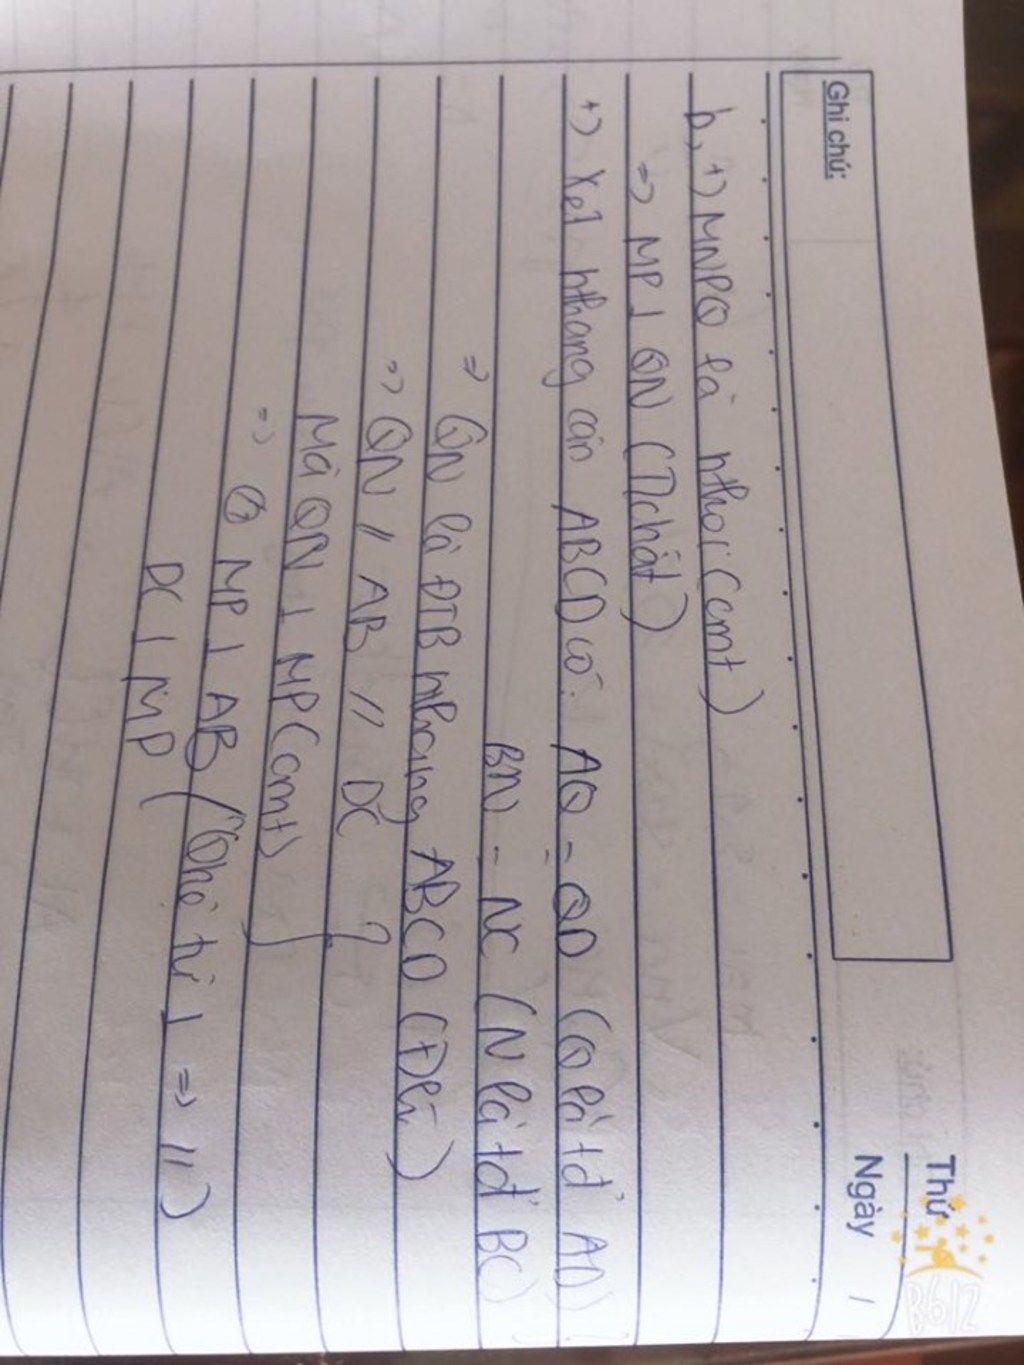 Thứ
Ngày /
Ghi chú:
b, +) MNPQ là hthoi (cmt)
=> MP ⊥ QN (T/chất)
+) Xét hthang cân ABCD có: AQ = QD (Q là tđ' AD)
BN = NC (N là tđ' BC)
=> QN là ĐTB hthang ABCD (Đlí)
=> QN // AB // DC
Mà QN ⊥ MP (cmt)
=> MP ⊥ AB (Qhệ từ ⊥ => //)
DC ⊥ MP
B612